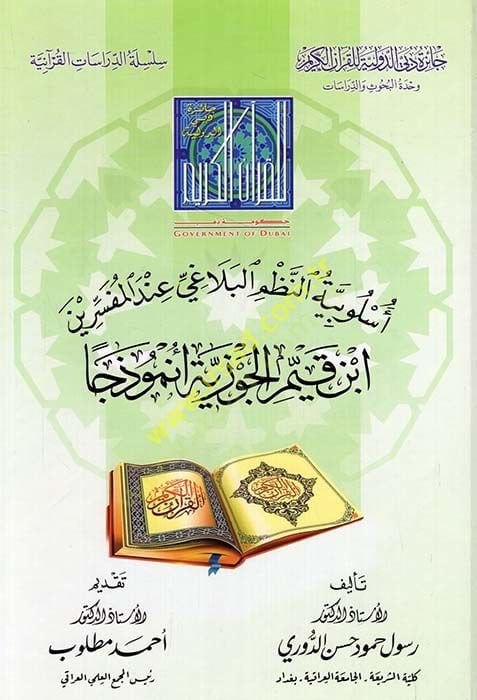 جائزة دبي الدولية للقرآن الكريم
وحدة البحوث والدراسات
سلسلة الدراسات القرآنية
جائزة
دبي
الدولية
للقرآن الكريم
حكومة دبي
GOVERNMENT OF DUBAI
أُسْلُوبِيَّةُ النَّظْمِ البَلَاغِيِّ عِنْدَ المُفَسِّرِيْنَ
ابْنُ قَيِّمِ الجَوْزِيَّةِ أُنْمُوذَجًا
القرآن الكريم
القرآن الكريم
تأليف
الأستاذ الدكتور
رسول حمود حسن الدوري
كلية الشريعة - الجامعة العراقية - بغداد
تقديم
الأستاذ الدكتور
أحمد مطلوب
رئيس المجمع العلمي العراقي